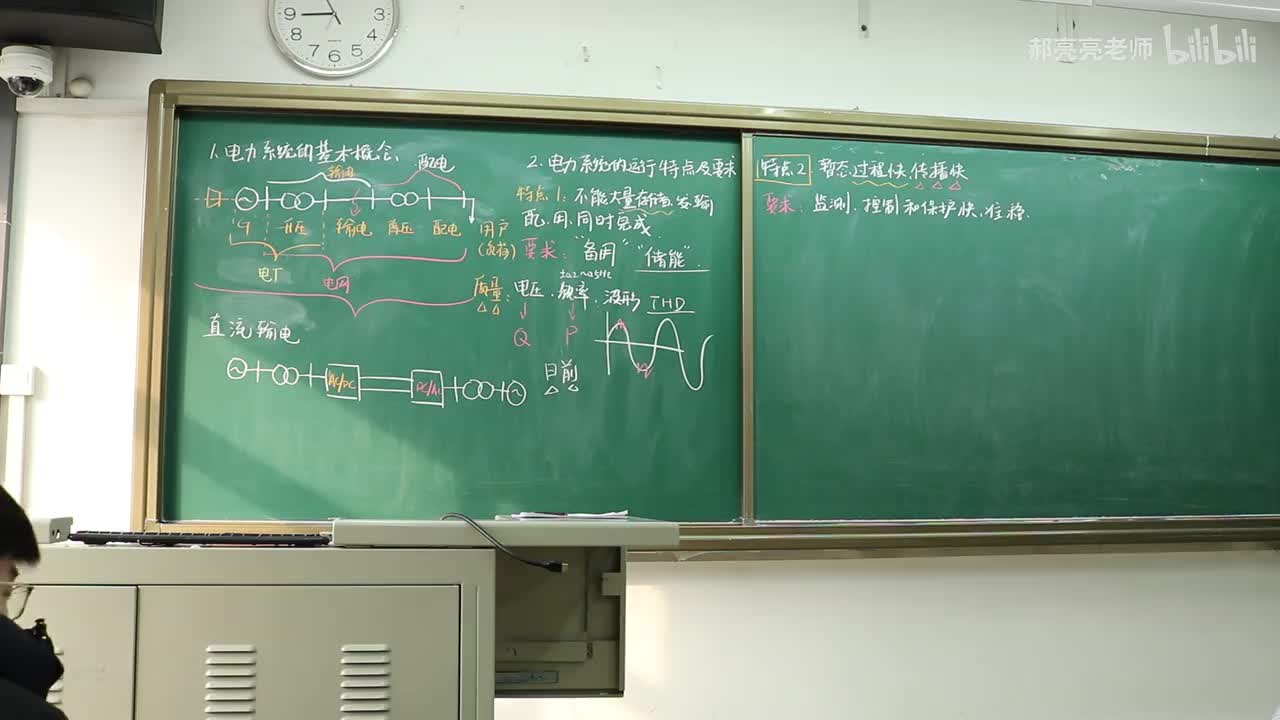 郝亮亮老师 bilibili
12
1
2
3
4
5
6
7
8
9
10
11
1.电力系统的基本概念
配电
输电
G 升压 输电 降压 配电 用户
(负荷)
电厂
电网
直流输电
AC/DC
DC/AC
2.电力系统的运行特点及要求
特点1:不能大量存储,发输
配、用、同时完成
要求:"备用" "储能".
质量:电压、频率、波形 THD
Q P
日前
特点2.暂态过程快,传播快
要求:监测、控制和保护快、准、稳.